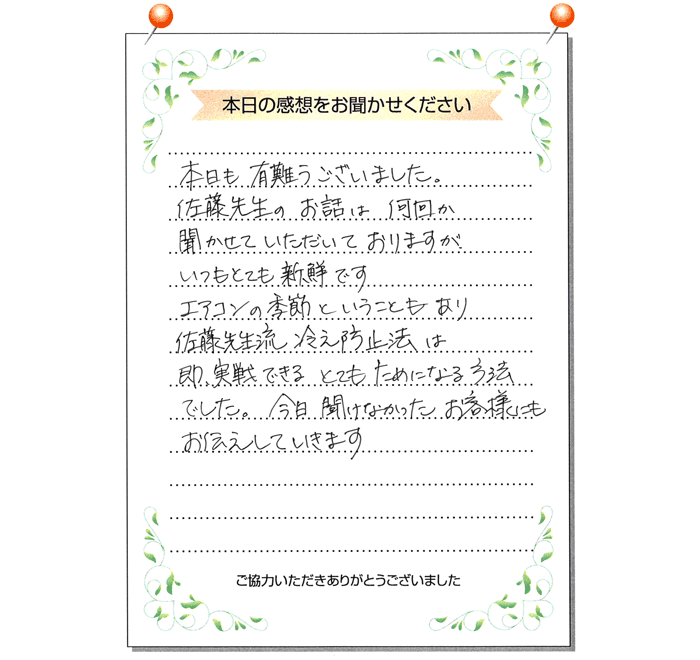 本日の感想をお聞かせください
本日も 有難うございました。
佐藤先生の お話は 何回か
聞かせていただいておりますが
いつもとても新鮮です
エアコンの季節ということもあり
佐藤先生流 冷え防止法は
即、実戦できる とてもためになる方法
でした。 今日 聞けなかった お客様にも
お伝えしていきます
ご協力いただきありがとうございました